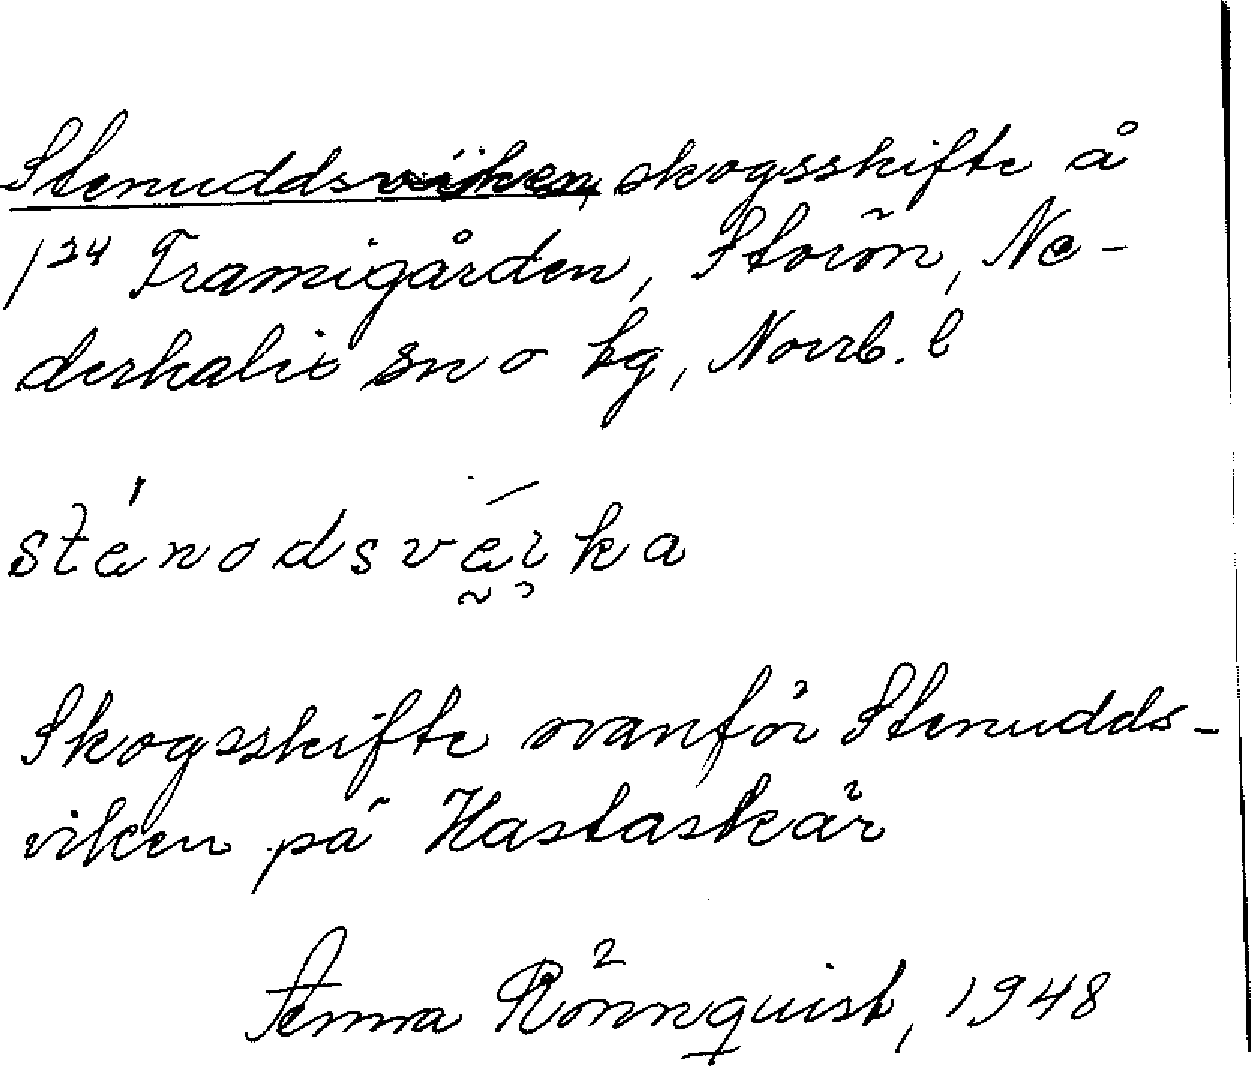 Stenuddsviken, skogsskifte å
1²⁴ Framigården, Storön, Ne-
derkalix sn o hg, Norrb. l
sténodsvéika
Skogsskifte ovanför Stenudds-
viken på Hastaskär
Anna Rönnquist, 1948